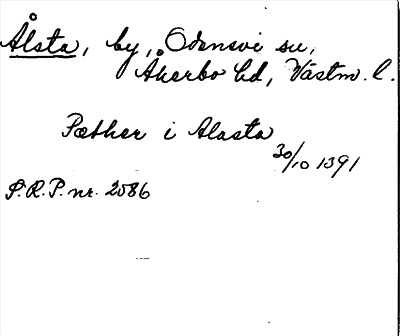 Ålsta, by, Odensvi sn,
Åkerbo hd, Västm. l.
Pæther i Alasta
30/10 1391
S.R.P. nr. 2086